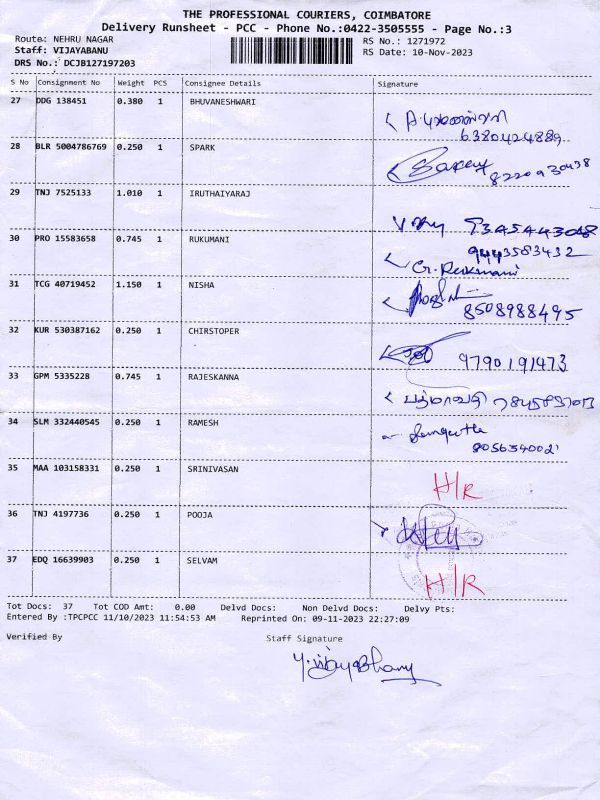 THE PROFESSIONAL COURIERS, COIMBATORE
Delivery Runsheet - PCC - Phone No.:0422-3505555 - Page No.:3
Route: NEHRU NAGAR
RS No.: 1271972
Staff: VIJAYABANU
RS Date: 10-Nov-2023
DRS No.: DCJB127197203
S No Consignment No Weight PCS Consignee Details Signature
27 DDG 138451 0.380 1 BHUVANESHWARI
6380424889
28 BLR 5004786769 0.250 1 SPARK
8220930438
29 TNJ 7525133 1.010 1 IRUTHAIYARAJ
30 PRO 15583658 0.745 1 RUKUMANI 9443583432
G. Rukmani
31 TCG 40719452 1.150 1 NISHA
8508988495
32 KUR 530387162 0.250 1 CHIRSTOPER
9790191473
33 GPM 5335228 0.745 1 RAJESKANNA
பத்மாவதி
34 SLM 332440545 0.250 1 RAMESH
35 MAA 103158331 0.250 1 SRINIVASAN
H/R
36 TNJ 4197736 0.250 1 POOJA
37 EDQ 16639903 0.250 1 SELVAM
H/R
Tot Docs: 37 Tot COD Amt: 0.00 Delvd Docs: Non Delvd Docs: Delvy Pts:
Entered By :TPCPCC 11/10/2023 11:54:53 AM Reprinted On: 09-11-2023 22:27:09
Verified By Staff Signature